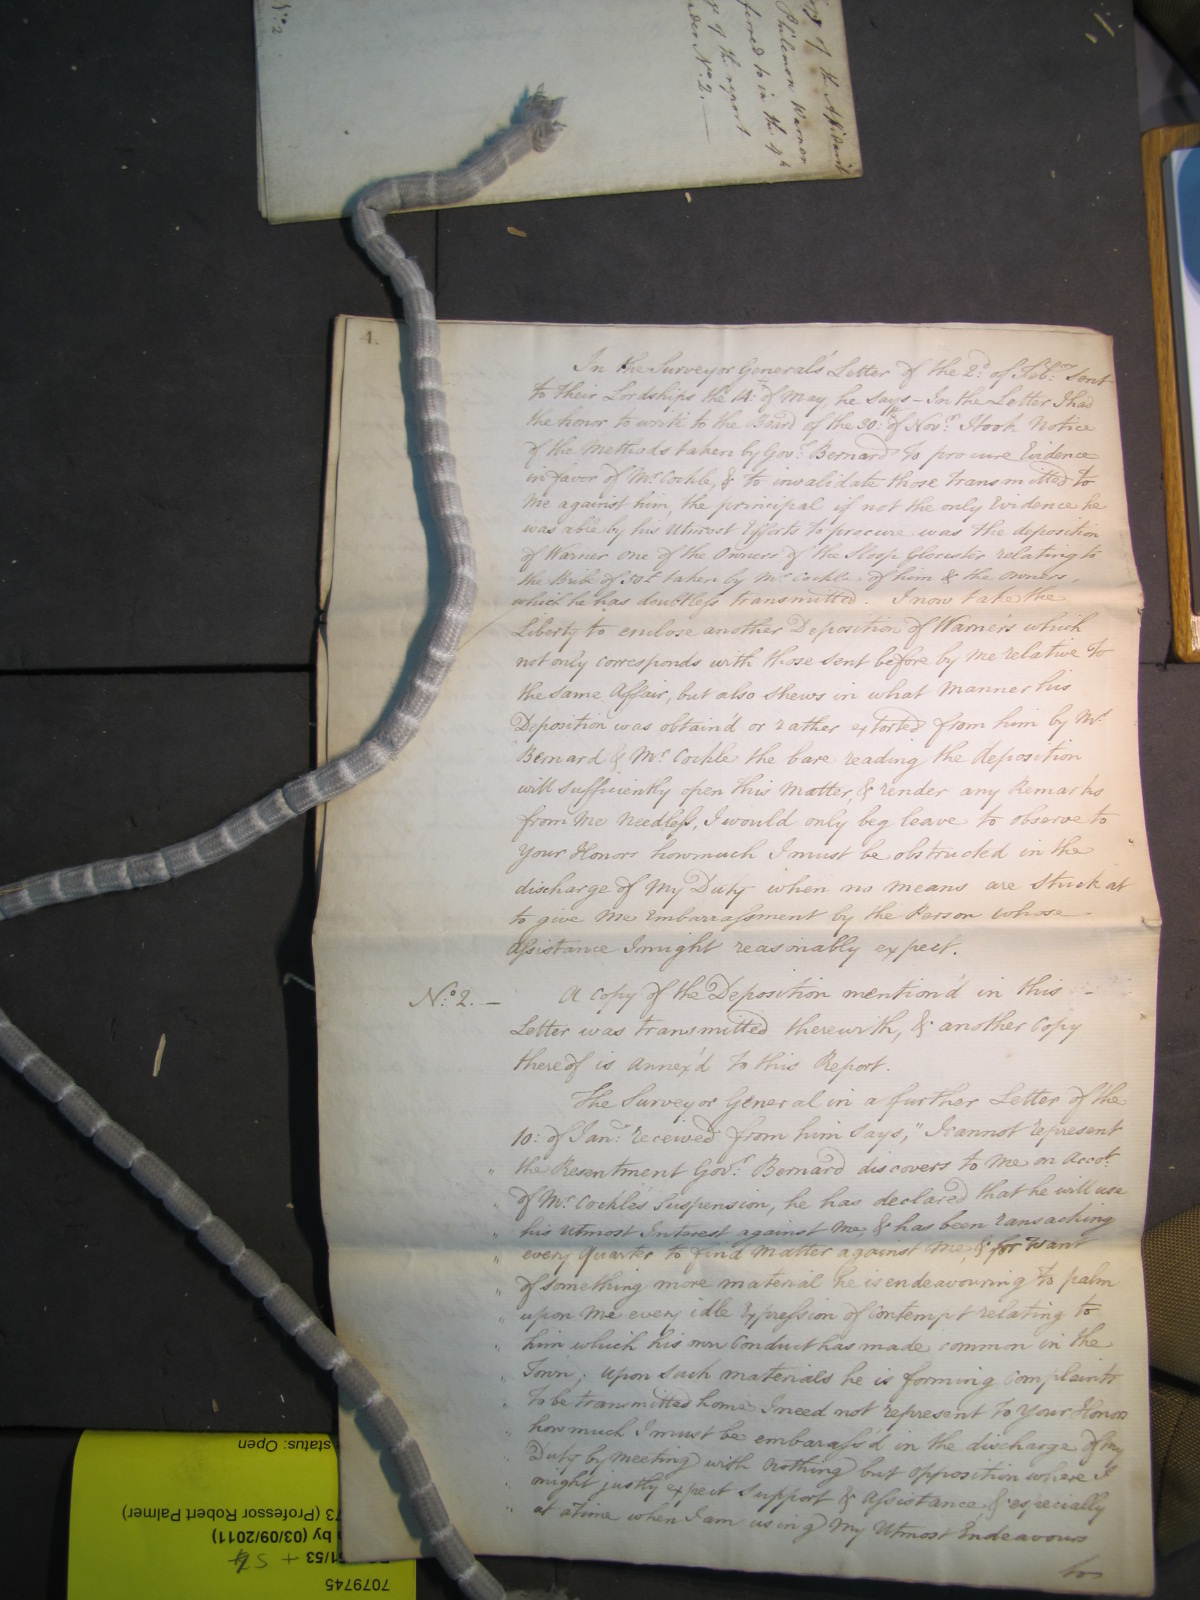 No. 2
ry of the Affidavit
Philemon Warner
ferred to in the
y of the report
under No. 2. —
4.
In the Surveyor General's Letter of the 2d. of Feb:ry sent
to their Lordships the 14: of May, he says — In the Letter I had
the honor to write to the Board of the 30: of Nov:r I took Notice
of the Methods taken by Gov:r Bernard to procure Evidence
in favor of Mr. Cockle, & to invalidate those transmitted to
me against him, the principal if not the only Evidence he
was able by his Utmost Efforts to procure was the deposition
of Warner one of the Owners of the Sloop Glocester relating to
the Bribe of 50£ taken by Mr. Cockle of him & the owners,
which he has doubtless transmitted. I now take the
Liberty to enclose another Deposition of Warners which
not only corresponds with those sent before by me relative to
the same Affair, but also shews in what manner his
Deposition was obtain'd or rather extorted from him by Mr.
Bernard & Mr. Cockle the bare reading the deposition
will sufficiently open this Matter, & render any Remarks
from me needless, I would only beg leave to observe to
Your Honors how much I must be obstructed in the
discharge of my Duty when no means are stuck at
to give me Embarrassment by the Person whose
Assistance I might reasonably expect.
No: 2. — A Copy of the Deposition mention'd in this
Letter was transmitted therewith, & another Copy
thereof is Annex'd to this Report.
The Surveyor General in a further Letter of the
10: of Jan:ry received from him says, "I cannot represent
" the Resentment Gov:r Bernard discovers to me on Accot.
" of Mr. Cockles Suspension, he has declared that he will use
" his Utmost Interest against me, & has been ransacking
" every Quarter to find matter against me, & for want
" of something more material he is endeavouring to palm
" upon me every idle Expression of Contempt relating to
" him which his own Conduct has made common in the
" Town; upon such materials he is forming complaints
" to be transmitted home I need not represent to Your Honors
" how much I must be embarass'd in the discharge of my
" Duty by meeting with nothing but opposition where I
" might justly expect Support & Assistance, & especially
" at a time when I am using my Utmost Endeavours
to
status: Open
73 (Professor Robert Palmer)
by (03/09/2011)
1/53 + 54
7079745